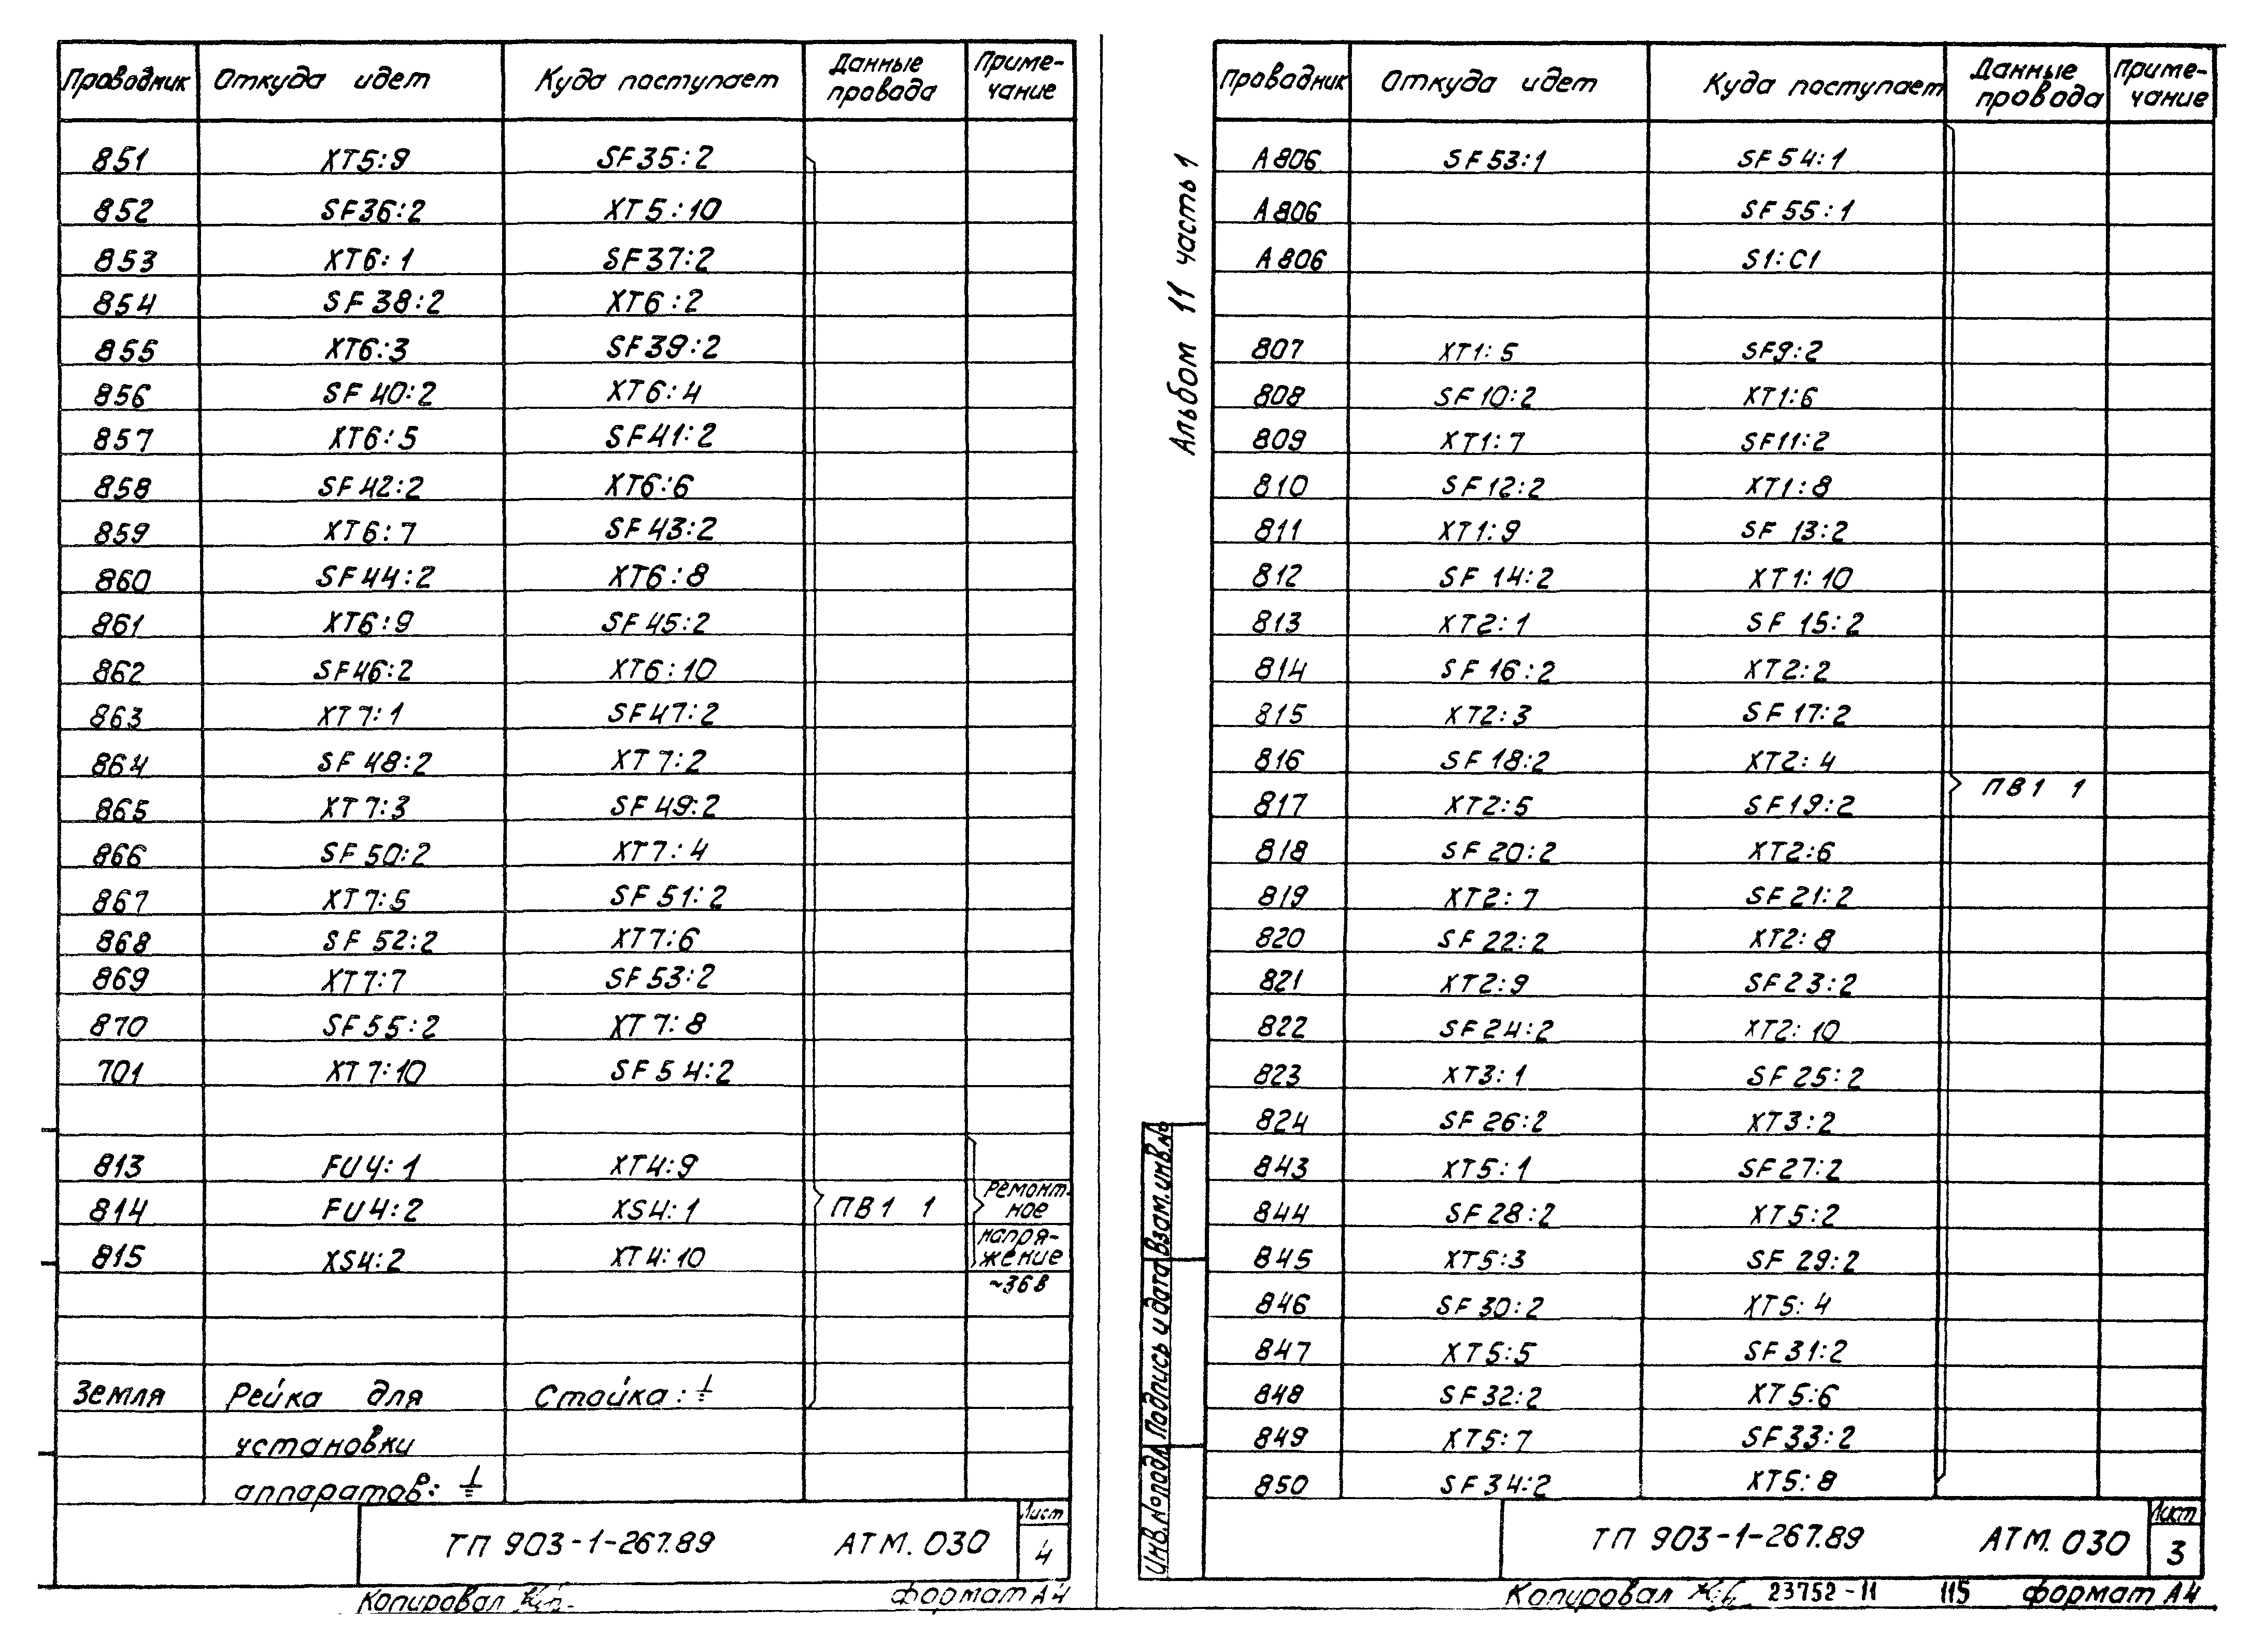 Проводник Откуда идет Куда поступает Данные провода Приме-чание
851 XT5:9 SF35:2
852 SF36:2 XT5:10
853 XT6:1 SF37:2
854 SF38:2 XT6:2
855 XT6:3 SF39:2
856 SF40:2 XT6:4
857 XT6:5 SF41:2
858 SF42:2 XT6:6
859 XT6:7 SF43:2
860 SF44:2 XT6:8
861 XT6:9 SF45:2
862 SF46:2 XT6:10
863 XT7:1 SF47:2
864 SF48:2 XT7:2
865 XT7:3 SF49:2
866 SF50:2 XT7:4
867 XT7:5 SF51:2
868 SF52:2 XT7:6
869 XT7:7 SF53:2
870 SF55:2 XT7:8
701 XT7:10 SF54:2
813 FU4:1 XT4:9
814 FU4:2 XS4:1 ПВ1 1 Ремонт-ное
815 XS4:2 XT4:10 напря-жение
~36В
Земля Рейка для Стойка:⏚
установки
аппаратов:⏚
ТП 903-1-267.89 АТМ.030 Лист 4
Копировал Формат А4
Альбом 11 часть 1
Проводник Откуда идет Куда поступает Данные провода Приме-чание
А806 SF53:1 SF54:1
А806 SF55:1
А806 S1:C1
807 XT1:5 SF9:2
808 SF10:2 XT1:6
809 XT1:7 SF11:2
810 SF12:2 XT1:8
811 XT1:9 SF13:2
812 SF14:2 XT1:10
813 XT2:1 SF15:2
814 SF16:2 XT2:2
815 XT2:3 SF17:2
816 SF18:2 XT2:4
ПВ1 1
817 XT2:5 SF19:2
818 SF20:2 XT2:6
819 XT2:7 SF21:2
820 SF22:2 XT2:8
821 XT2:9 SF23:2
822 SF24:2 XT2:10
823 XT3:1 SF25:2
824 SF26:2 XT3:2
843 XT5:1 SF27:2
844 SF28:2 XT5:2
845 XT5:3 SF29:2
846 SF30:2 XT5:4
847 XT5:5 SF31:2
848 SF32:2 XT5:6
849 XT5:7 SF33:2
850 SF34:2 XT5:8
Инв.№подл. Подпись и дата Взам.инв.№
ТП 903-1-267.89 АТМ.030 Лист 3
Копировал 23752-11 115 Формат А4